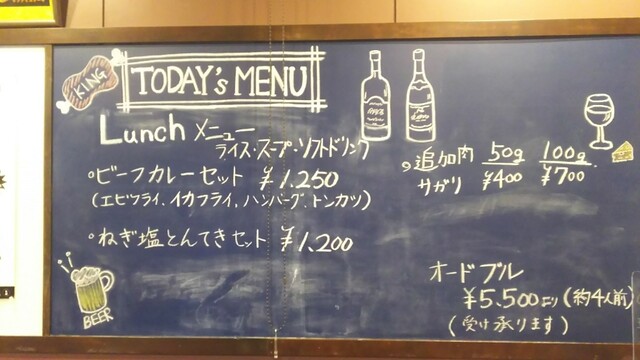 KING
TODAY's MENU
Lunch メニュー
ライス・スープ・ソフトドリンク
・ビーフカレーセット ¥1.250
(エビフライ、イカフライ、ハンバーグ、トンカツ)
・ねぎ塩とんてきセット ¥1,200
BEER
・追加肉 50g 100g
サガリ ¥400 ¥700
オードブル
¥5.500より (約4人前)
(受け承ります)